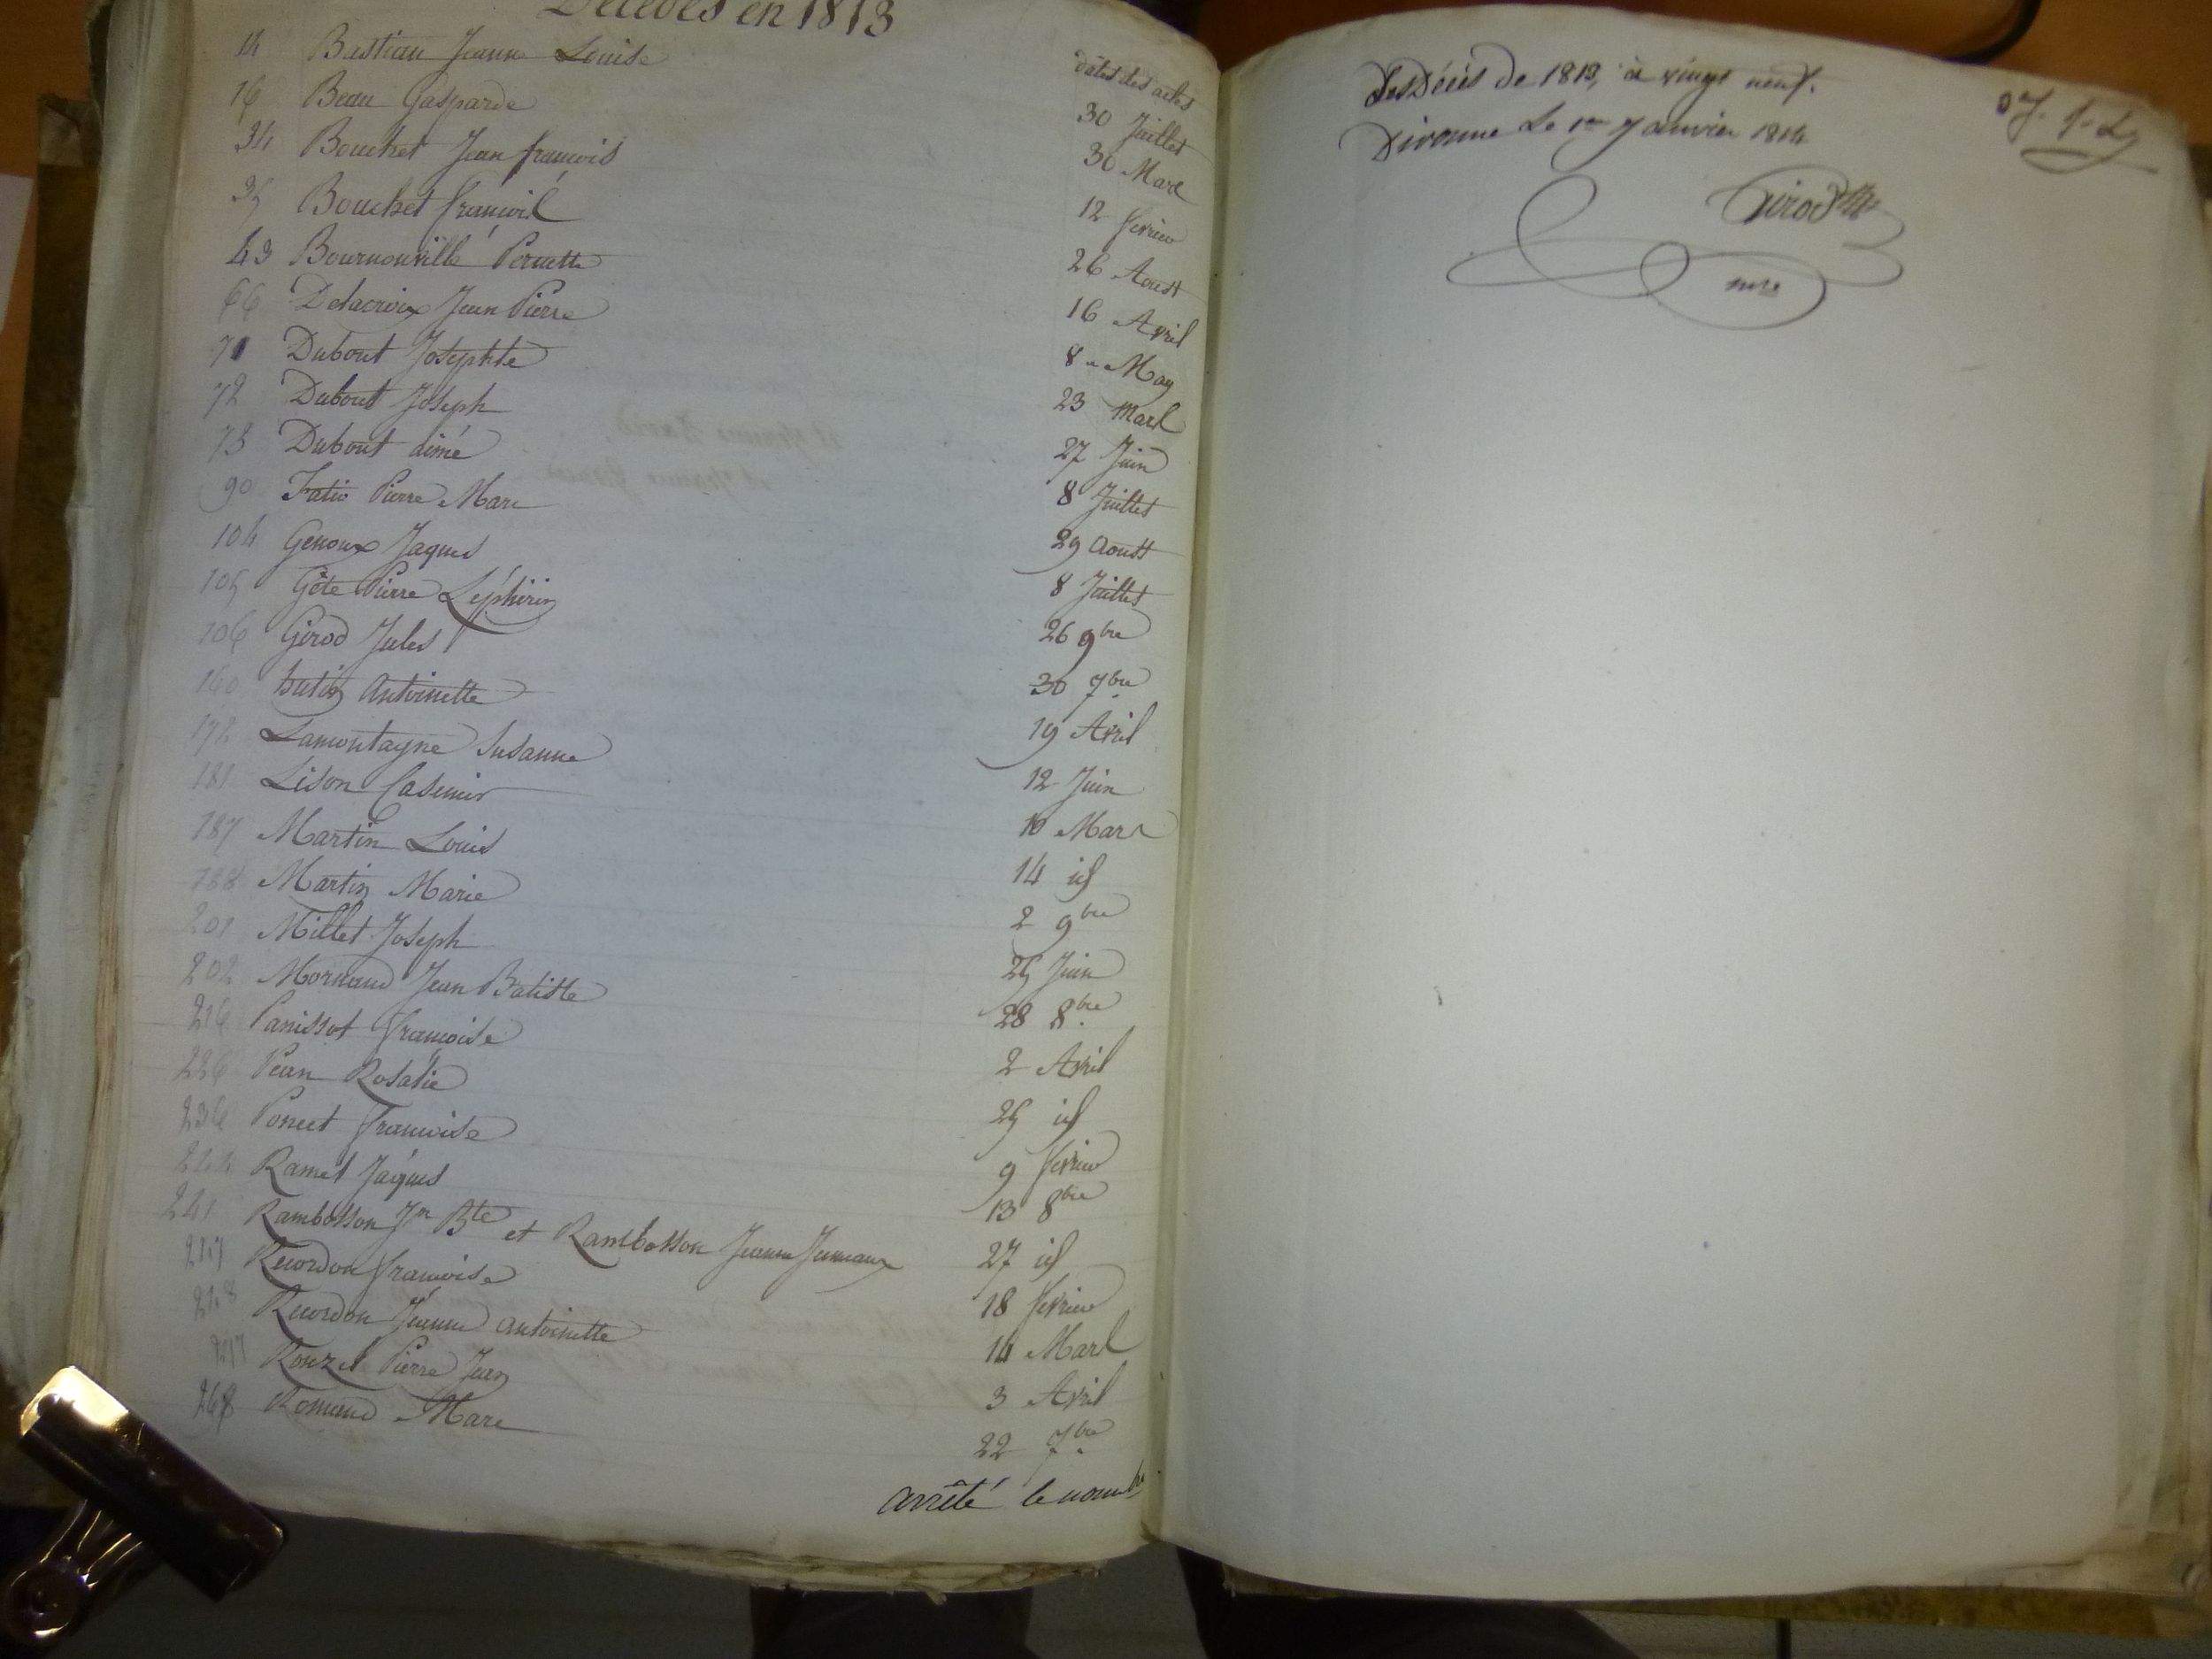 Décédés en 1813
dates des actes
14 Bastian Jeanne Louise 30 Juillet
16 Beau Gasparde 30 Mars
34 Bouchet Jean françois 12 fevrier
35 Bouchet françois 26 Aoust
43 Bournonville Pernette 16 Avril
66 Delacroix Jean Pierre 8 May
71 Dubout Josephte 23 Mars
72 Dubout Joseph 27 Juin
73 Dubout aimé 8 Juillet
90 Fatio Pierre Marc 29 Aoust
104 Genoux Jaques 8 Juillet
105 Gête Pierre Zéphirin 26 9bre
106 Girod Jules 30 7bre
160 hutin Antoinette 19 Avril
172 Lamontagne Susanne 12 Juin
181 Lison Casimir 10 Mars
187 Martin Louis 14 id
188 Martin Marie 2 9bre
201 Millet Joseph 25 Juin
202 Mornand Jean Batiste 28 8bre
216 Panissot françoise 2 Avril
226 Pean Rosalie 25 id
236 Poncet françoise 9 fevrier
Ramel Jaques 13 8bre
241 Rambosson Jn Bte et Rambosson Jeanne Jumeaux 27 id
Recordon françoise 18 fevrier
Recordon Jeanne Antoinette 14 Mars
Rouzel Pierre Jean 3 Avril
268 Romand Marc 22 7bre
arrêté le nombre
des Décès de 1813, à vingt neuf.
Divonne Le 1er Janvier 1814
Girod
mre